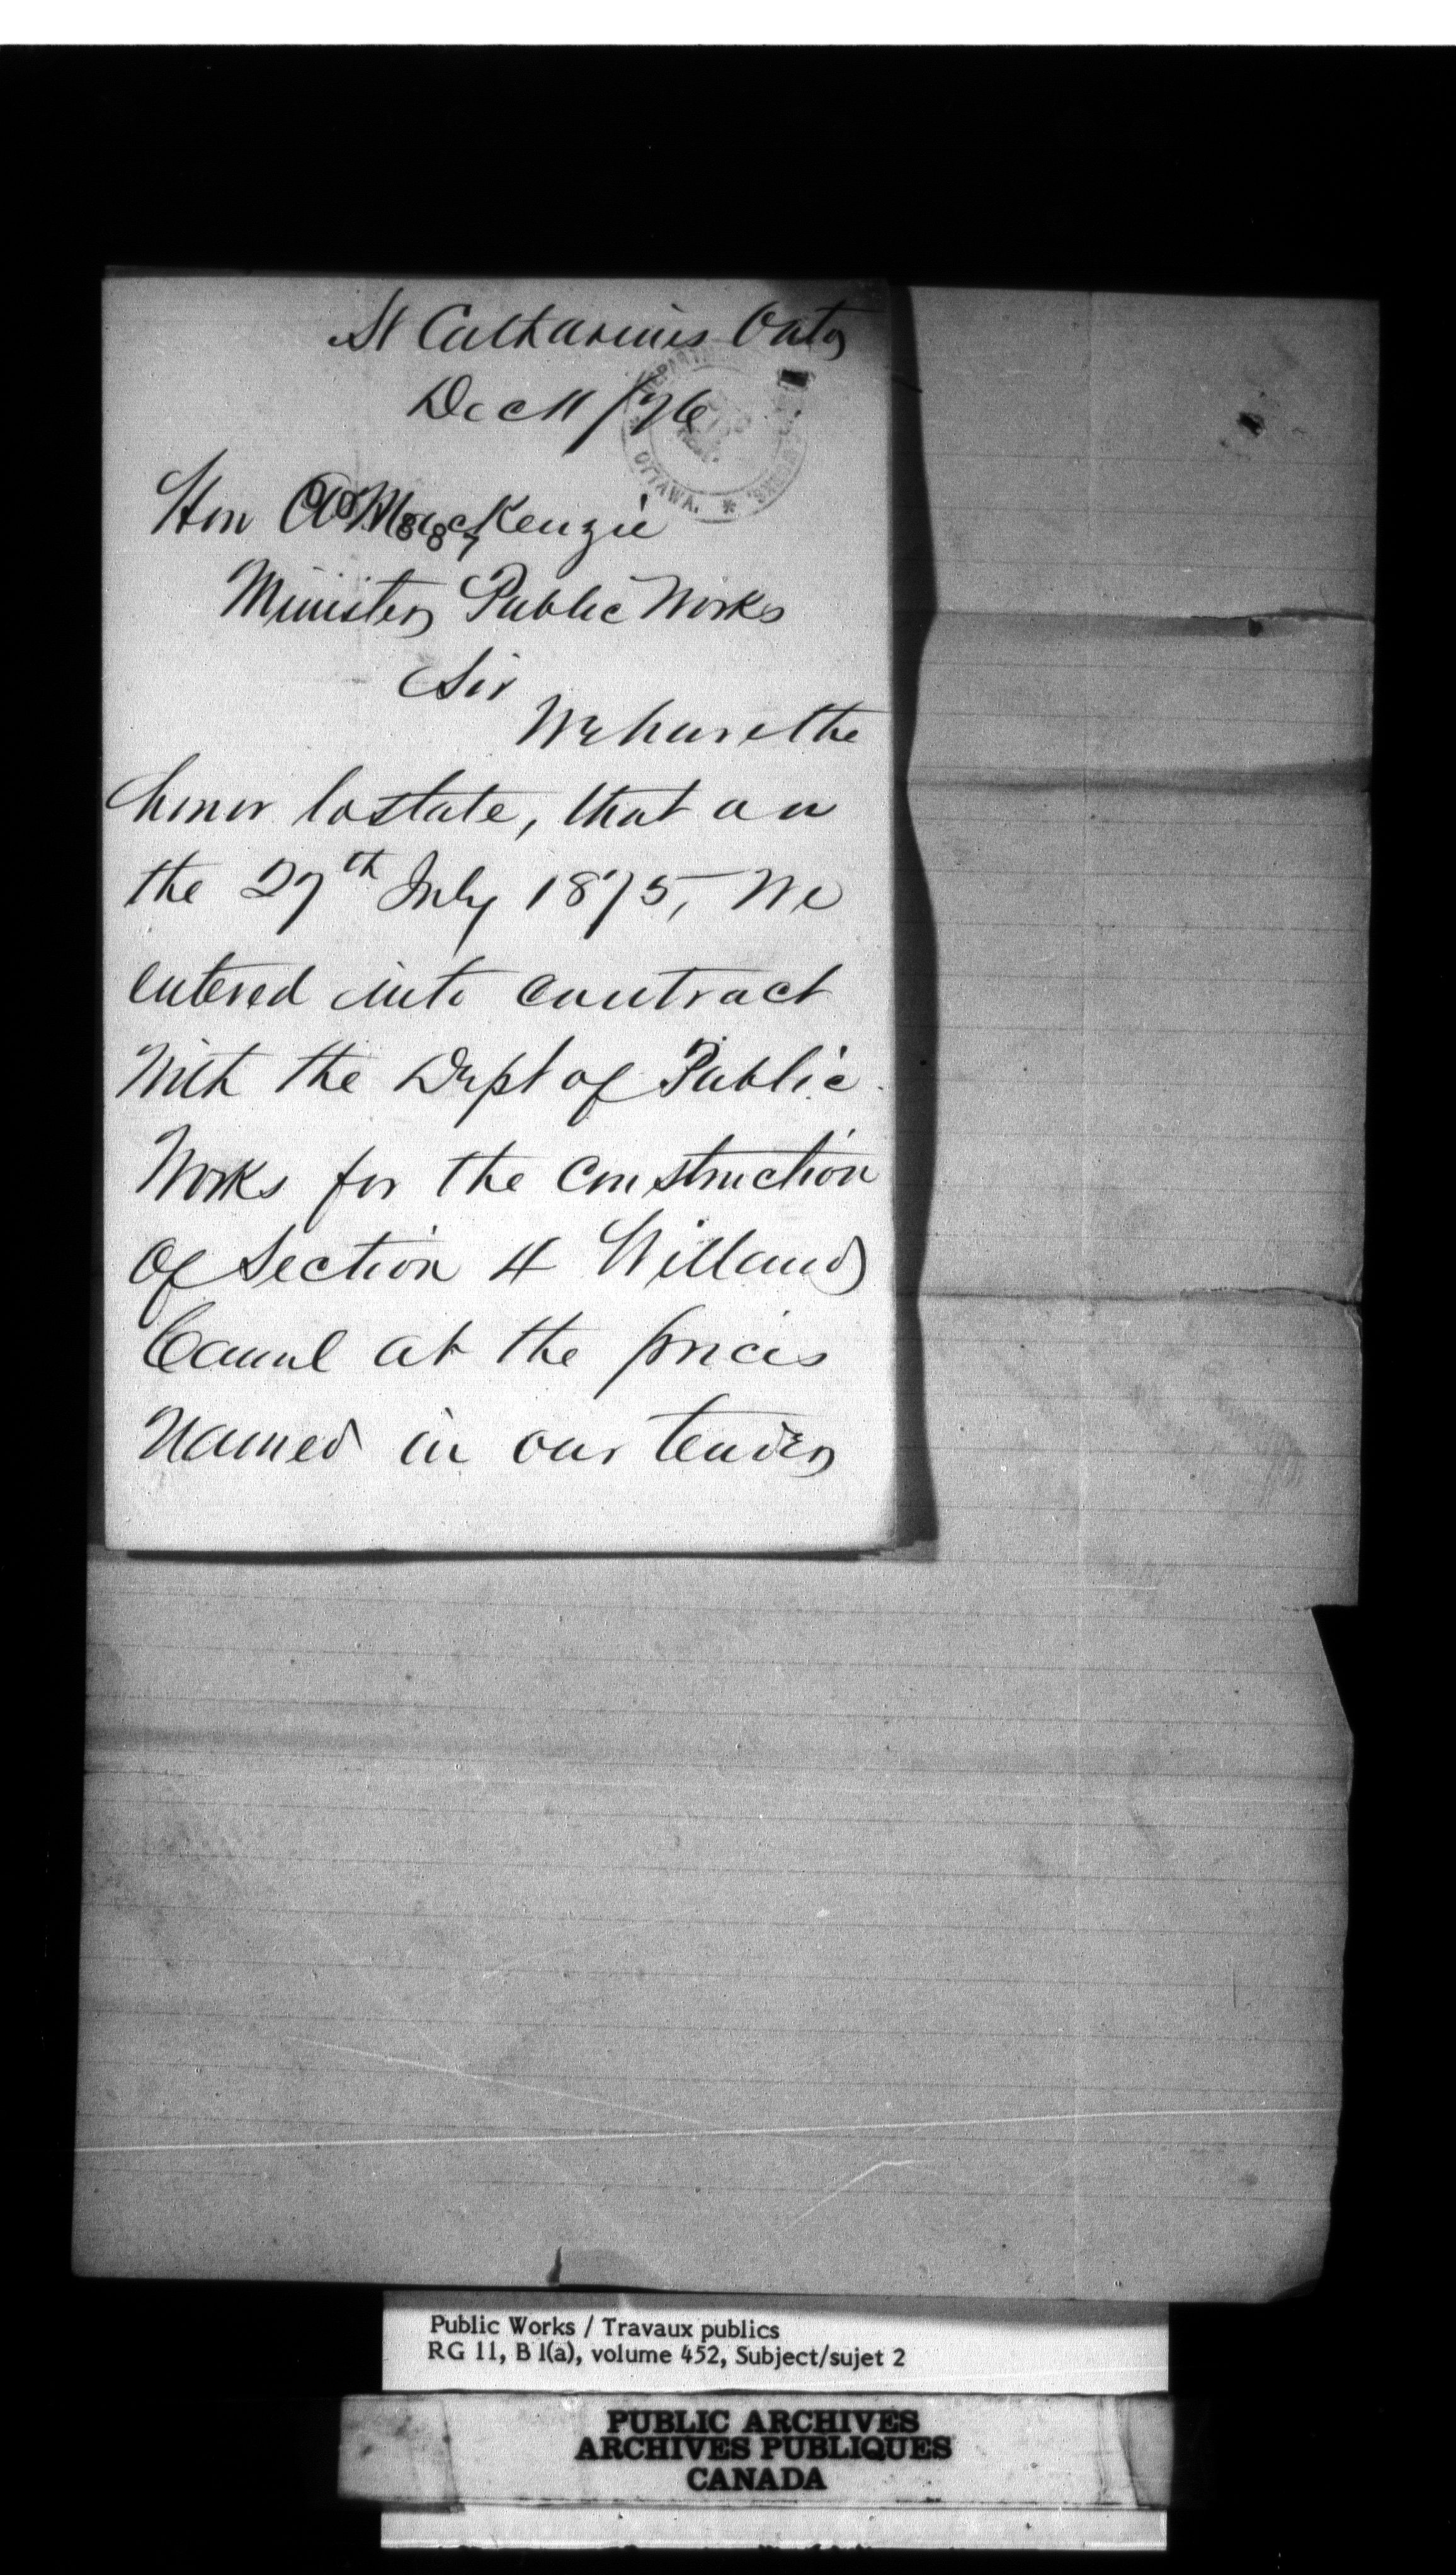 St Catharines Onto
Dec 11/76
DEPARTM
OTTAWA. *
Hon A MacKenzie
Minister Public Works
Sir
We have the
honor to state, that on
the 27th July 1875, We
entered into contract
With the Dept of Public
Works for the Construction
Of Section 4 Welland
Canal at the prices
Named in our tender
Public Works / Travaux publics
RG 11, B 1(a), volume 452, Subject/sujet 2
PUBLIC ARCHIVES
ARCHIVES PUBLIQUES
CANADA